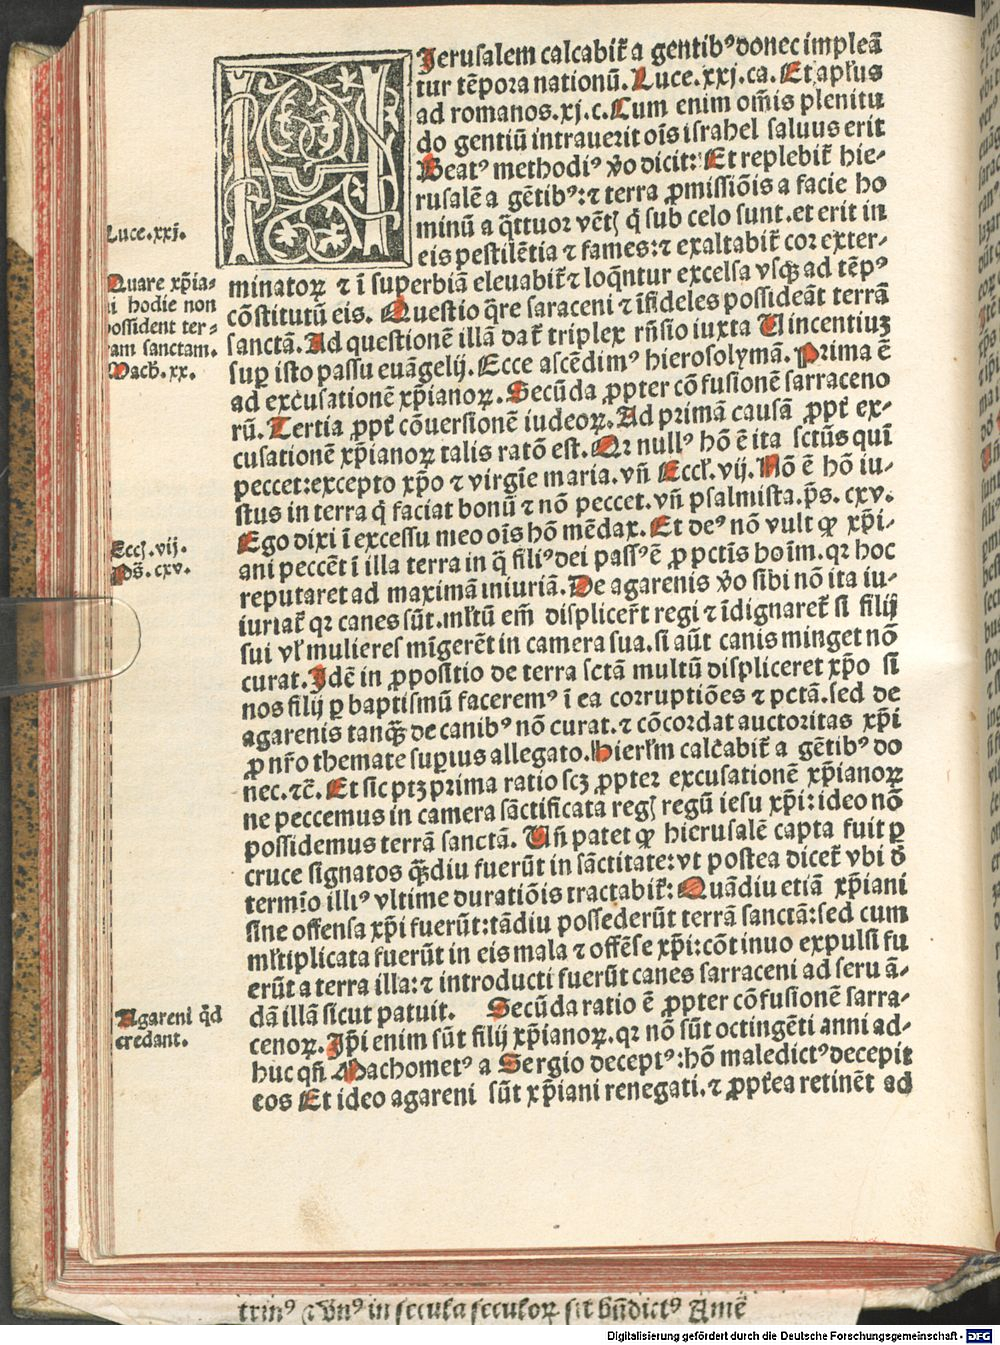 HJerusalem calcabit᷑ a gentibꝰ donec impleã
tur tẽpora nationũ. Luce.xxj.ca. Et apl'us
ad romanos.xj.c. Cum enim om̃is plenitu
do gentiũ intrauerit oĩs israhel saluus erit
Beatꝰ methodiꝰ ṽo dicit: Et replebit᷑ hie-
rusalẽ a gẽtibꝰ: ⁊ terra ꝓmissiõis a facie ho
minũ a q̃ttuor vẽtꝭ q̃ sub celo sunt. et erit in
eis pestilẽtia ⁊ fames: ⁊ exaltabit᷑ cor exter-
minatoꝝ ⁊ ĩ superbiã eleuabit᷑ ⁊ loq̃ntur excelsa vsqꝫ ad tẽpꝰ
cõstitutũ eis. Questio q̃re saraceni ⁊ ĩfideles possideãt terrã
sanctã. Ad questionẽ illã dat᷑ triplex rñsio iuxta Uincentiuꝫ
suꝑ isto passu euãgelij. Ecce ascẽdimꝰ hierosolymã. Prima ẽ
ad excusationẽ xp̃ianoꝝ. Secũda ꝓpter cõfusionẽ sarraceno
rũ. Tertia ꝓpt᷑ cõuersionẽ iudeoꝝ. Ad primã causã ꝓpt᷑ ex-
cusationẽ xp̃ianoꝝ talis ratõ est. Qr nullꝰ hõ ẽ ita sctũs quĩ
peccet: excepto xp̃o ⁊ virgĩe maria. vñ Eccl'. vij. Nõ ẽ hõ iu-
stus in terra q̃ faciat bonũ ⁊ nõ peccet. vñ psalmista. p̃s. cxv.
Ego dixi ĩ excessu meo oĩs hõ mẽdax. Et deꝰ nõ vult ꝙ xp̃i-
ani peccẽt ĩ illa terra in q̃ filiꝰ dei passꝰ ẽ ꝓ pctĩs hoĩm. qr hoc
reputaret ad maximã iniuriã. De agarenis ṽo sibi nõ ita iu-
iuriat᷑ qr canes sũt. ml'tũ em̃ displicer᷑t regi ⁊ ĩdignaret᷑ si filij
sui vl' mulieres mĩgerẽt in camera sua. si aũt canis minget nõ
curat. Idẽ in ꝓpositio de terra sctã multũ displiceret xp̃o si
nos filij ꝑ baptismũ faceremꝰ ĩ ea corruptiões ⁊ pctã. sed de
agarenis tanqꝫ de canibꝰ nõ curat. ⁊ cõcordat auctoritas xp̃i
ꝓ nr̃o themate suꝑius allegato. Hierl'm calcabit᷑ a gẽtibꝰ do
nec. ⁊c̃. Et sic ptꝫ prima ratio scꝫ ꝓpter excusationẽ xp̃ianoꝝ
ne peccemus in camera sãctificata regꝭ regũ iesu xp̃i: ideo nõ
possidemus terrã sanctã. Uñ patet ꝙ hierusalẽ capta fuit ꝑ
cruce signatos qꝫdiu fuerũt in sãctitate: vt postea dicet᷑ vbi d̃
termĩo illiꝰ vltime duratiõis tractabit᷑: Quãdiu etiã xp̃iani
sine offensa xp̃i fuerũt: tãdiu possederũt terrã sanctã: sed cum
ml'tiplicata fuerũt in eis mala ⁊ offẽse xp̃i: cõtinuo expulsi fu
erũt a terra illa: ⁊ introducti fuerũt canes sarraceni ad seruã-
dã illã sicut patuit. Secũda ratio ẽ ꝓpter cõfusionẽ sarra-
cenoꝝ. Ip̃i enim sũt filij xp̃ianoꝝ. qr nõ sũt octingẽti anni ad-
huc qñ Machometꝰ a Sergio deceptꝰ: hõ maledictꝰ decepit
eos Et ideo agareni sũt xp̃iani renegati. ⁊ ꝓpt᷑ea retinẽt ad
Luce.xxj.
Quare xp̃ia-
ni hodie non
possident ter-
ram sanctam.
Mach'. xx.
Eccl'. vij.
Ps̃. cxv.
Agareni q̃d
credant.
trinꝰ ⁊ vnꝰ in secula seculoꝝ sit bñdictꝰ Amẽ
Digitalisierung gefördert durch die Deutsche Forschungsgemeinschaft - DFG